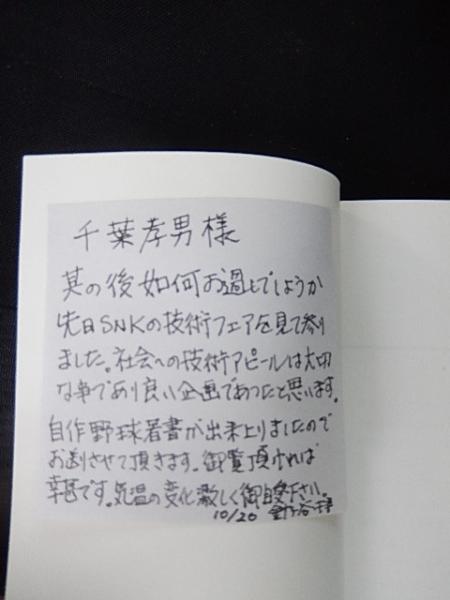 千葉孝男様
其の後如何お過しでしょうか
先日SNKの技術フェアを見て参り
ました。社会への技術アピールは大切
な事であり良い企画であったと思います。
自作野球著書が出来上りましたので
お送りさせて頂きます。御覧頂ければ
幸甚です。気温の変化激しく御自愛下さい。
10/20